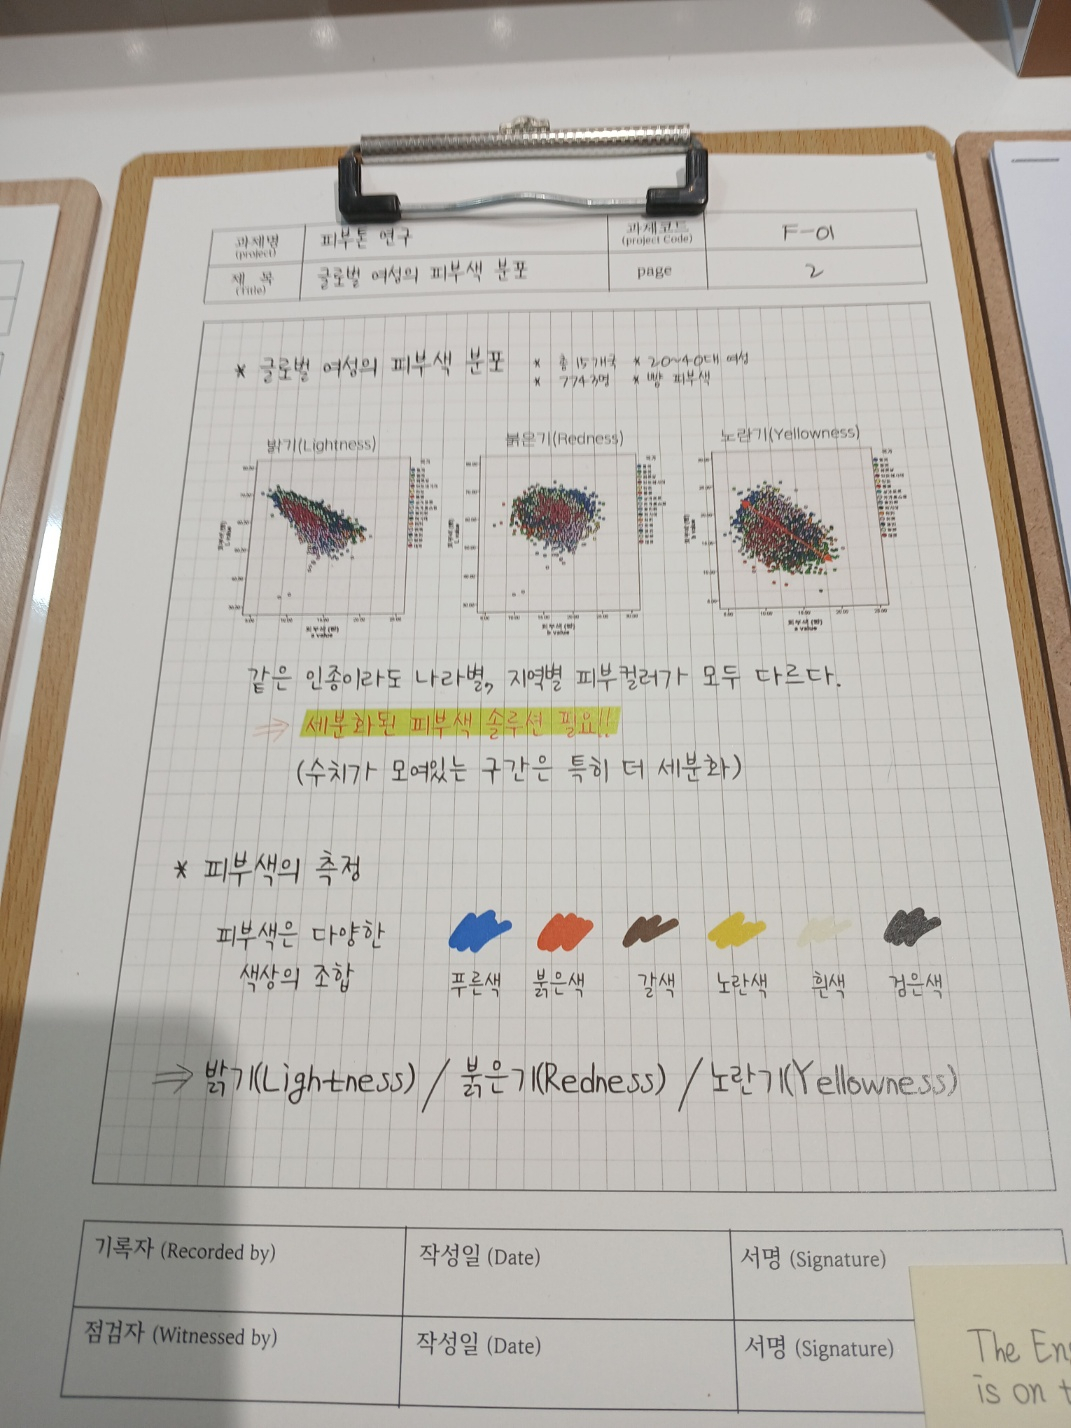 과제명 (project) 피부톤 연구 과제코드 (project Code) F-01
제 목 (Title) 글로벌 여성의 피부색 분포 page 2
* 글로벌 여성의 피부색 분포 * 총 15개국 * 20~40대 여성
* 7743명 * 뺨 피부색
밝기(Lightness) 붉은기(Redness) 노란기(Yellowness)
같은 인종이라도 나라별, 지역별 피부컬러가 모두 다르다.
⇒ 세분화된 피부색 솔루션 필요!!
(수치가 모여있는 구간은 특히 더 세분화)
* 피부색의 측정
피부색은 다양한
색상의 조합
푸른색 붉은색 갈색 노란색 흰색 검은색
⇒ 밝기(Lightness) / 붉은기(Redness) / 노란기(Yellowness)
기록자 (Recorded by) 작성일 (Date) 서명 (Signature)
점검자 (Witnessed by) 작성일 (Date) 서명 (Signature)
The
is on